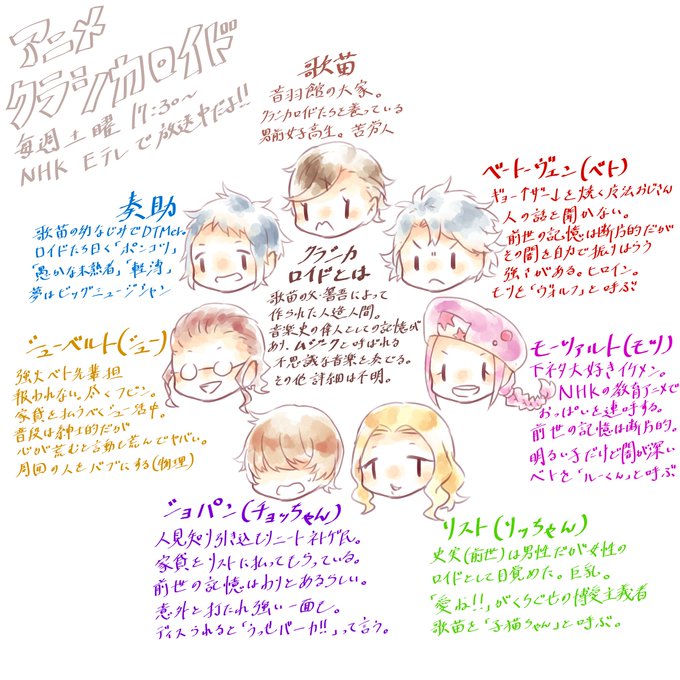 アニメ
クラシカロイド
毎週土曜 17:30~
NHK Eテレで放送中だよ!!
歌苗
音羽館の大家。
クラシカロイドたちを養っている
男前女子高生。苦労人
奏助
歌苗の幼なじみでDTMer。
ロイドたち曰く「ポンコツ」
「愚かな未熟者」「軽薄」
夢はビッグミュージシャン
ベートーヴェン(ベト)
ギョーザを焼く魔法おじさん
人の話を聞かない。
前世の記憶は断片的だが
その闇を自力で振りはらう
強さがある。ヒロイン。
モツを「ヴォルフ」と呼ぶ
クラシカ
ロイドとは
歌苗の父・響吾によって
作られた人造人間。
音楽史の偉人としての記憶が
あり、ムジークと呼ばれる
不思議な音楽を奏でる。
その他詳細は不明。
シューベルト(シュー)
強火ベト先輩担
報われない。尽くフビン。
家賃を払うべくシュー活中。
普段は紳士的だが
心が荒むと言動も荒んでヤバい。
周囲の人をバブにする(物理)
モーツァルト(モツ)
下ネタ大好きイケメン。
NHKの教育アニメで
おっぱいを連呼する。
前世の記憶は断片的。
明るい子だけど闇が深い
ベトを「ルーくん」と呼ぶ
ショパン(チョッちゃん)
人見知り引き込もりニートネトゲ民。
家賃をリストに払ってもらっている。
前世の記憶はわりとあるらしい。
意外と打たれ強い一面も。
ディスられると「うっせバーカ!!」って言う。
リスト(リッちゃん)
史実(前世)は男性だが女性の
ロイドとして目覚めた。巨乳。
「愛ね!!」がくちぐせの博愛主義者
歌苗を「子猫ちゃん」と呼ぶ。